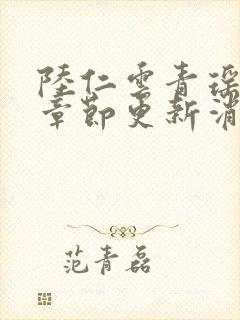 陸仁雲青瑶
章節更新消
范青磊